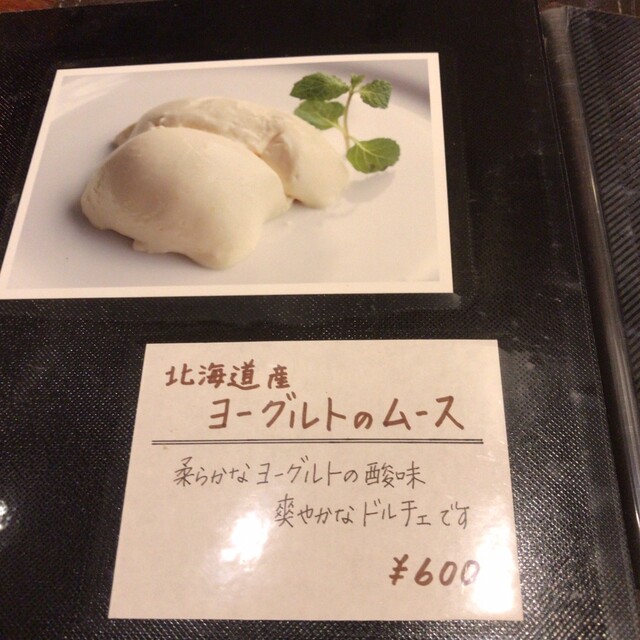 北海道産
ヨーグルトのムース
柔らかなヨーグルトの酸味
爽やかなドルチェです
¥600